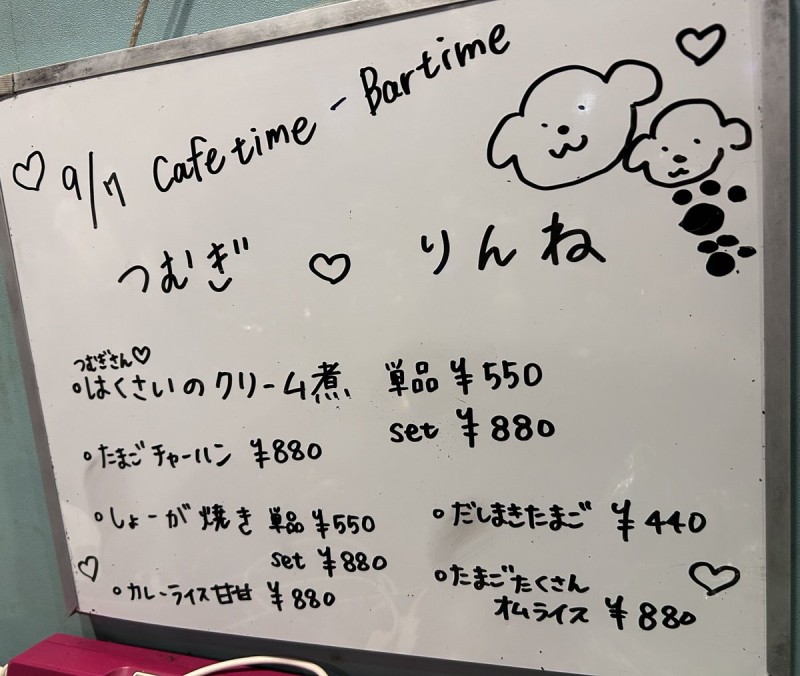 9/7 Cafetime - Bartime
つむぎ ♡ りんね
つむぎさん♡
・はくさいのクリーム煮 単品 ¥550
set ¥880
・たまごチャーハン ¥880
・しょーが焼き 単品 ¥550
set ¥880
・カレーライス甘甘 ¥880
・だしまきたまご ¥440
・たまごたくさん
オムライス ¥880